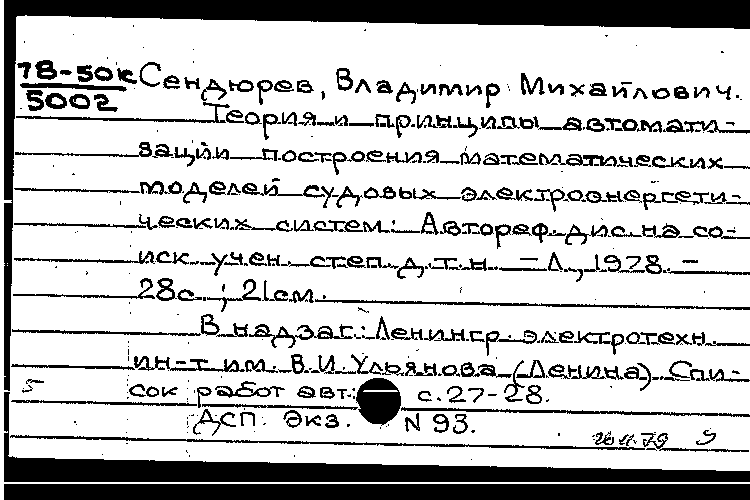 78-50к Сендюрев, Владимир Михайлович.
5002
Теория и принципы автомати-
зации построения математических
моделей судовых электроэнергети-
ческих систем: Автореф. дис. на со-
иск. учен. степ. д.т.н. - Л., 1978. -
28с.; 21см.
В надзаг.: Ленингр. электротехн.
ин-т им. В.И. Ульянова (Ленина). Спи-
5 сок работ авт.: с. 27-28.
ДСП. Экз. N 93.